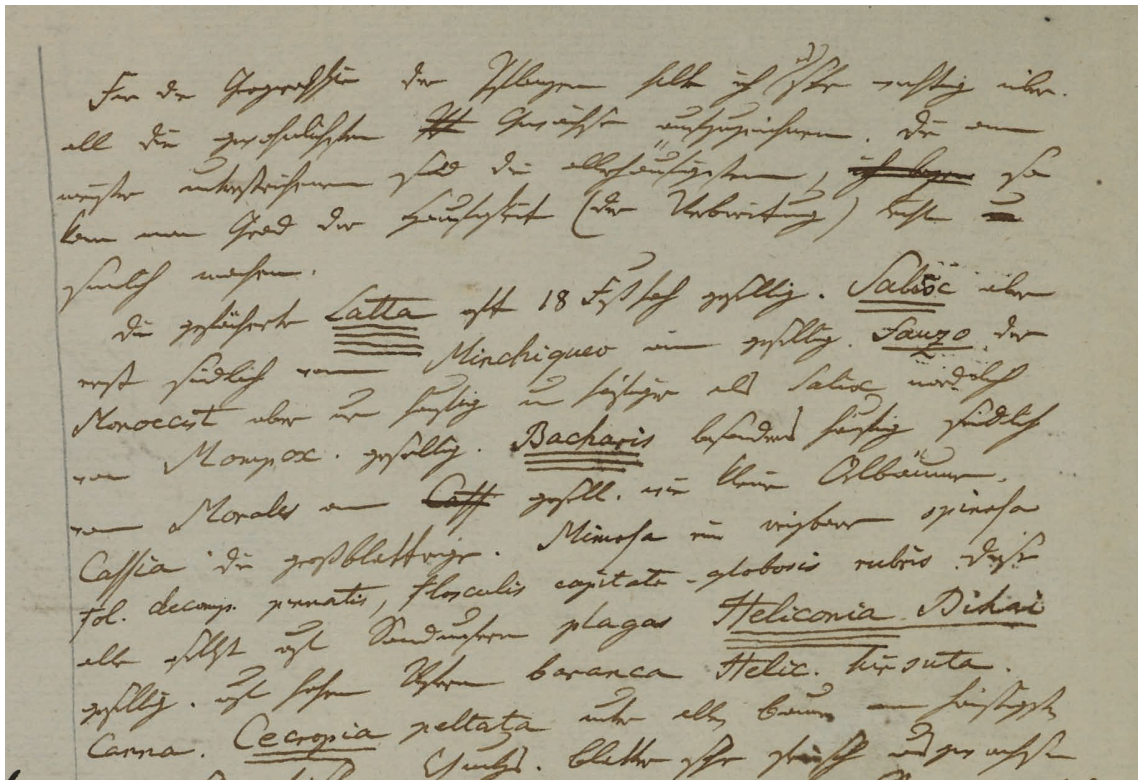 Für die Geographie der Pflanzen halte ich es sehr wichtig über-
all die gewöhnlichsten Gewächse aufzuzeichnen. Die am
meisten unterstrichenen sind die allerhäufigsten, ich so
kann man Grad der Häufigkeit (der Verbreitung) leicht
sinnlich machen.
die gefächerte Latta oft 18 Fuß hoch gesellig. Salix aber
erst südlich von Minchiqueo an gesellig. Sauzo der
Monoecist aber an häufig u häufiger als Salix nördlich
von Mompox. gesellig. Bacharis besonders häufig südlich
von Morales an Caff gesell. wie kleine Oelbäume.
Cassia die großblättrige. Mimosa ein reizbare spinosa
fol. decomp. pennatis, flosculis capitato-globosis rubris diese
alle selbst auf Sandufern plagas Heliconia Bihai
gesellig. auf hohen Ufern baranca Helic. hirsuta.
Canna. Cecropia peltata unter allen Bäumen am häufigsten
Blätter sehr